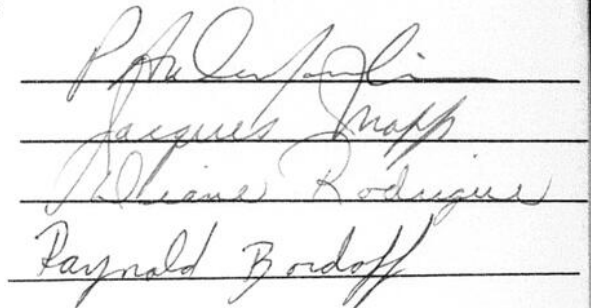 Jacques Snapp
Diane Rodrigue
Raynald Bordoff